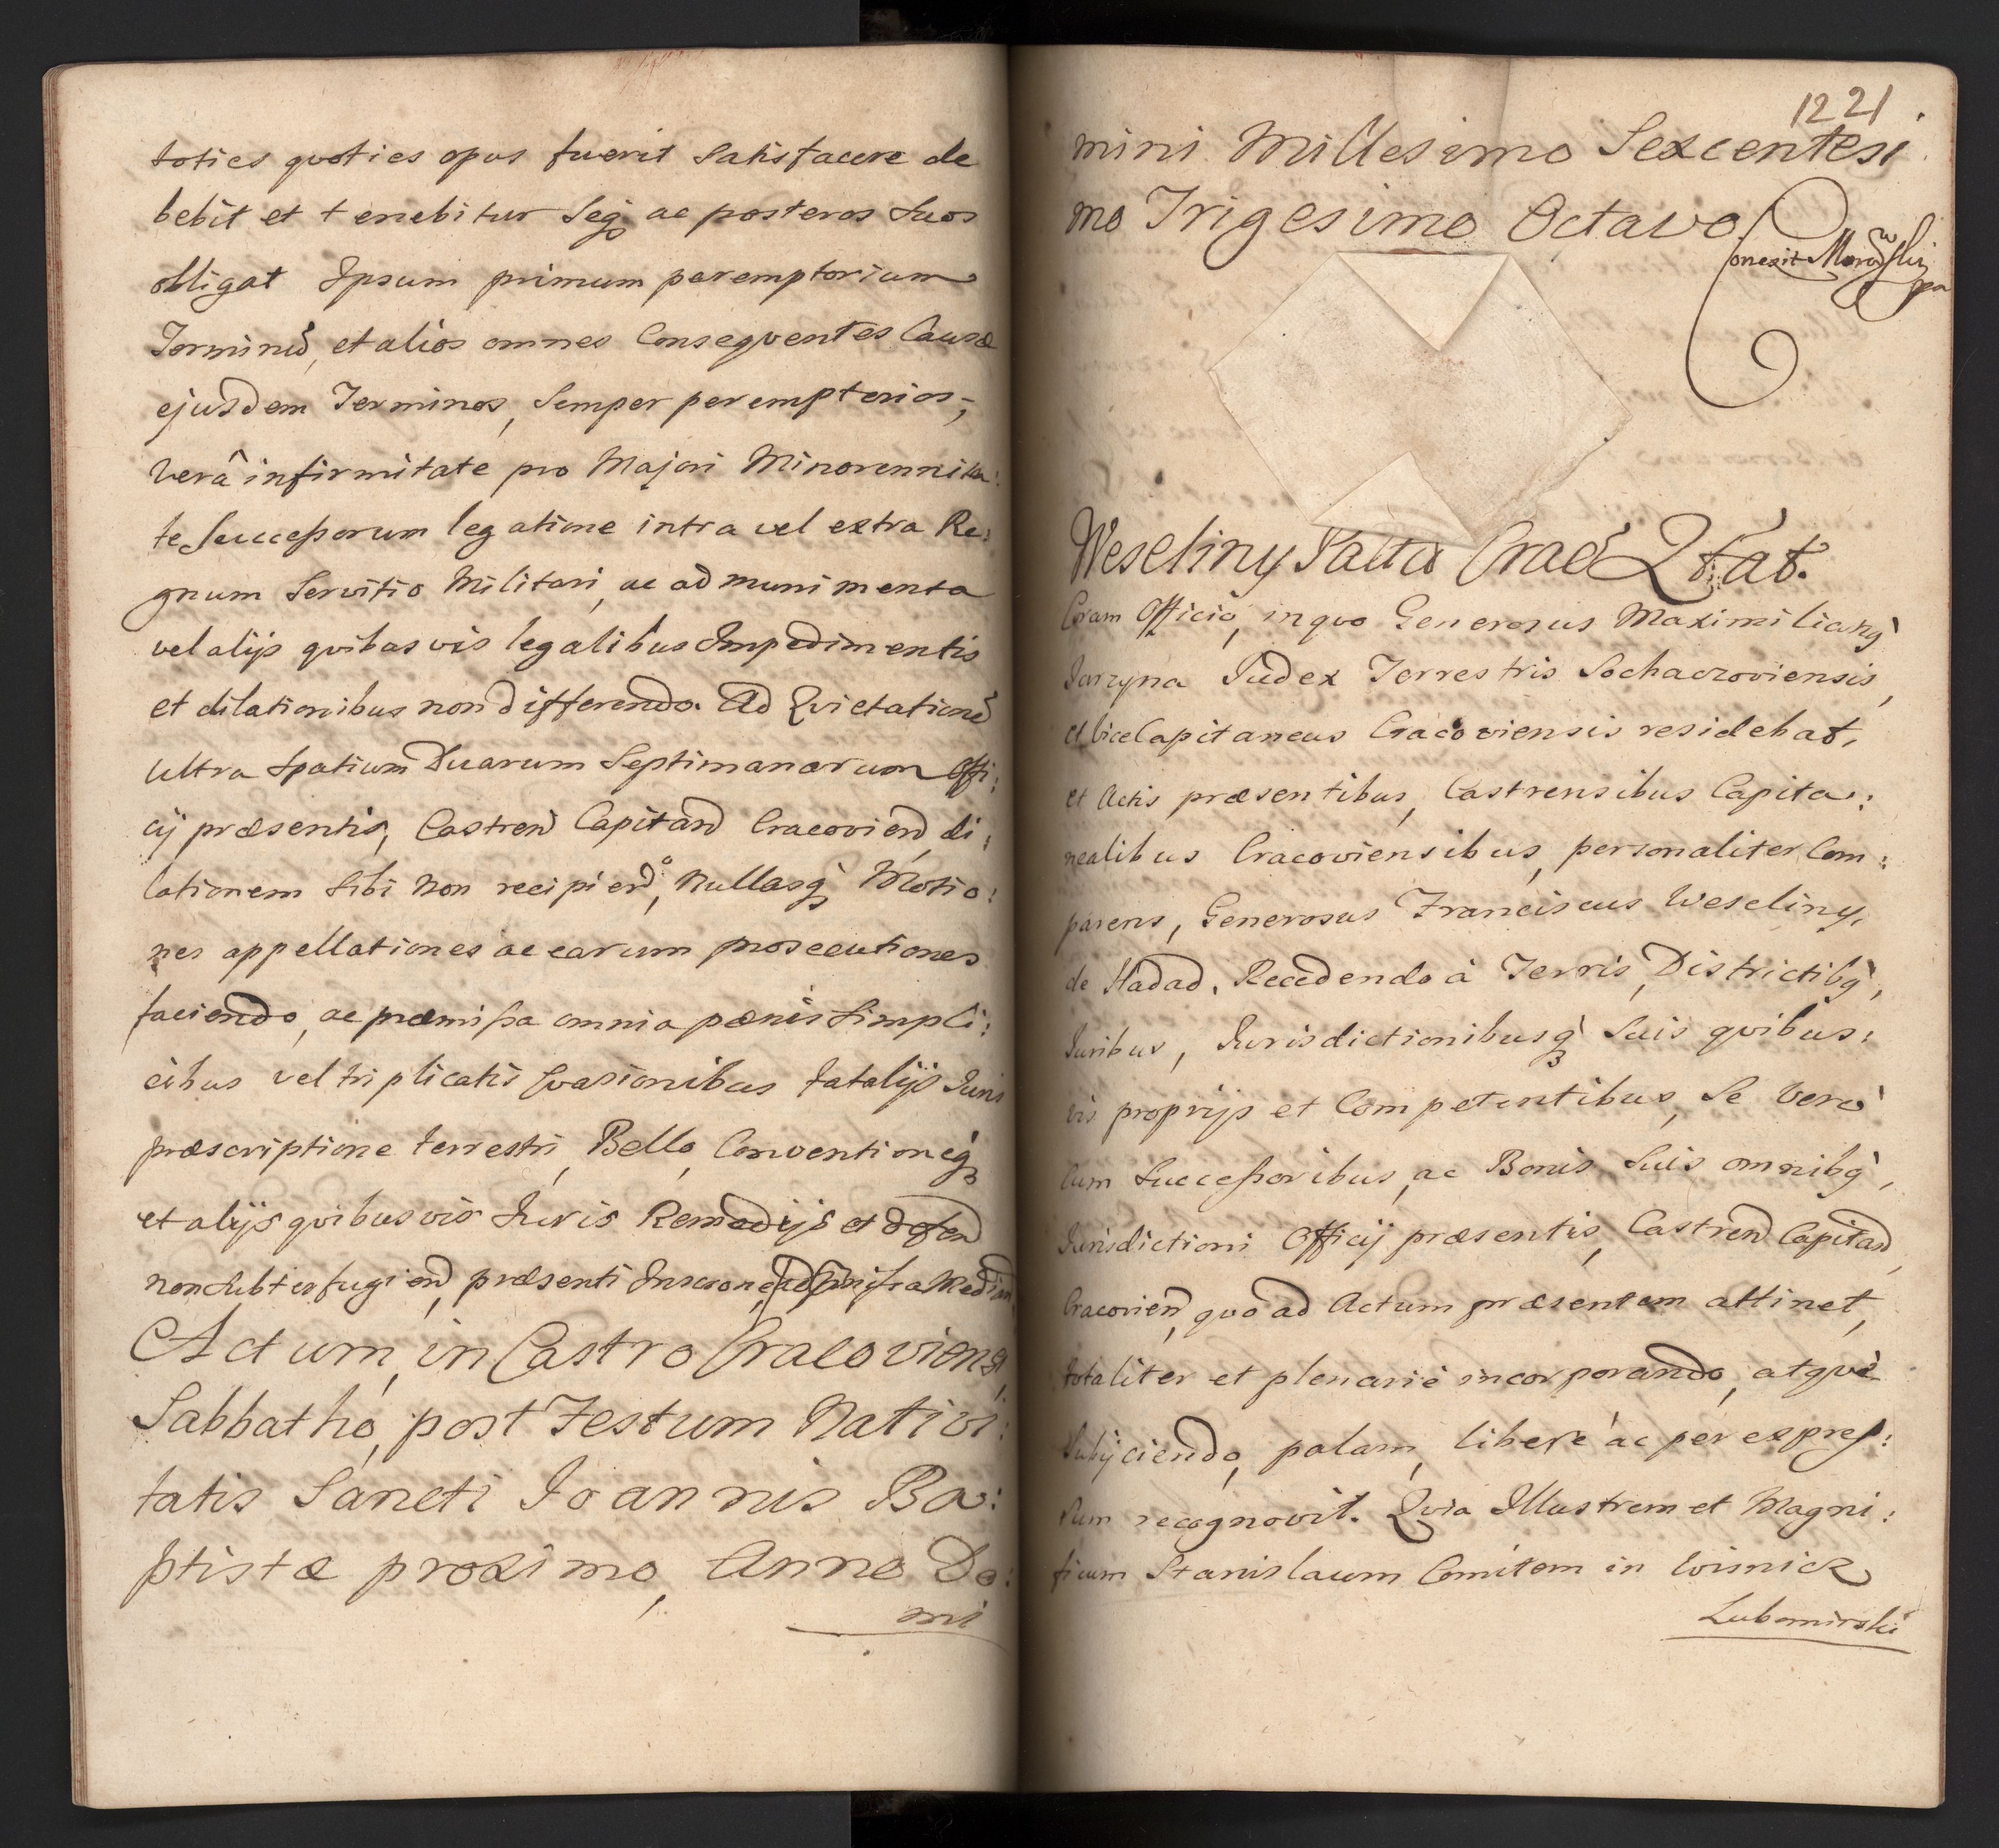 toties quoties opus fuerit satisfacere de
bebit et tenebitur Seq3 ac posteros Suos
obligat Ipsum primum peremptorium
Terminũ, et alios omnes Conseqventes Causæ
ejusdem Terminos, Semper peremptorios,
verâ infirmitate pro Majori Minorennita:
te Successorum legatione intra vel extra Re:
gnum Servitio Militari, ac ad munimenta
vel alijs qvibasvis legalibus Impedimentis
et dilationibus non differendo. Ad Qvietationẽ
ultra Spatium Duarum Septimanarum Offi:
cij præsentis, Castren Capitan Cracovien di:
lationem Sibi non recipiendo, Nullasq3 Motio:
nes appellationes ac earum prosecutiones
faciendo, ac præmissa omnia pænis Simpli:
cibus vel triplicatis fatalijs Juris
præscriptione terrestri, Bello, Conventioneq3
et alijs qvibusvis Juris Remedijs et defen
non Subterfugien, præsenti
Actum, in Castro Cracoviensi,
Sabbatho, post Festum Nativi:
tatis Sancti Joannis Ba:
ptistæ proximo, Anno Do:
mi
1221.
mini Millesimo Sexcentesi
mo Trigesimo Octavo.
Weseliny Palta Crac Qtat.
Coram Officio, in quo Generosus Maximilianq
Jarzyna Judex Terrestris Sochaczoviensis,
et ViceCapitaneus Cracoviensis residebat,
et Actis præsentibus, Castrensibus Capita:
nealibus Cracoviensibus, personaliter Com:
parens, Generosus Franciscus Weseliny,
de Hadad, Recedendo à Terris, Districtibq,
Juribus, Jurisdictionibusq3 Suis qvibus:
vis proprijs et Competentibus, Se vero
Cum Successoribus, ac Bonis Suis omnibq,
Jurisdictioni Officij præsentis, Castren Capitan,
Cracovien, quo ad Actum præsentem attinet,
totaliter et plenarie incorporando, atque
Subijciendo, palam, libere ac per expres:
Sum recognovit. Qvia Illustrem et Magni:
ficum Stanislaum Comitem in Wisnicz
Lubomirski